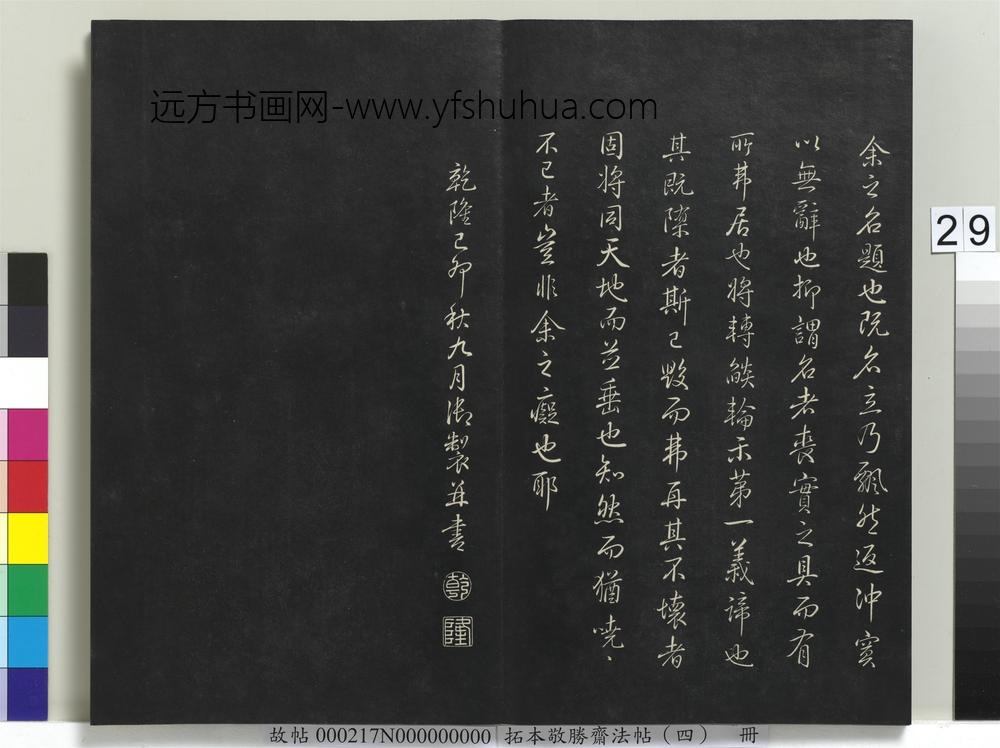 远方书画网-www.yfshuhua.com
余之名題也既名立乃飄然返冲
以無辭也抑謂名者喪實之具而有
所弗居也將轉燄輪示第一義諦也
其既者斯已毀而弗再其不壞者
固將同天地而並垂也知然而猶嘵〻
不已者豈非余之癡也耶
乾隆己卯秋九月御製并書
乾
隆
29
故帖 000217N000000000 拓本敬勝齋法帖（四） 冊